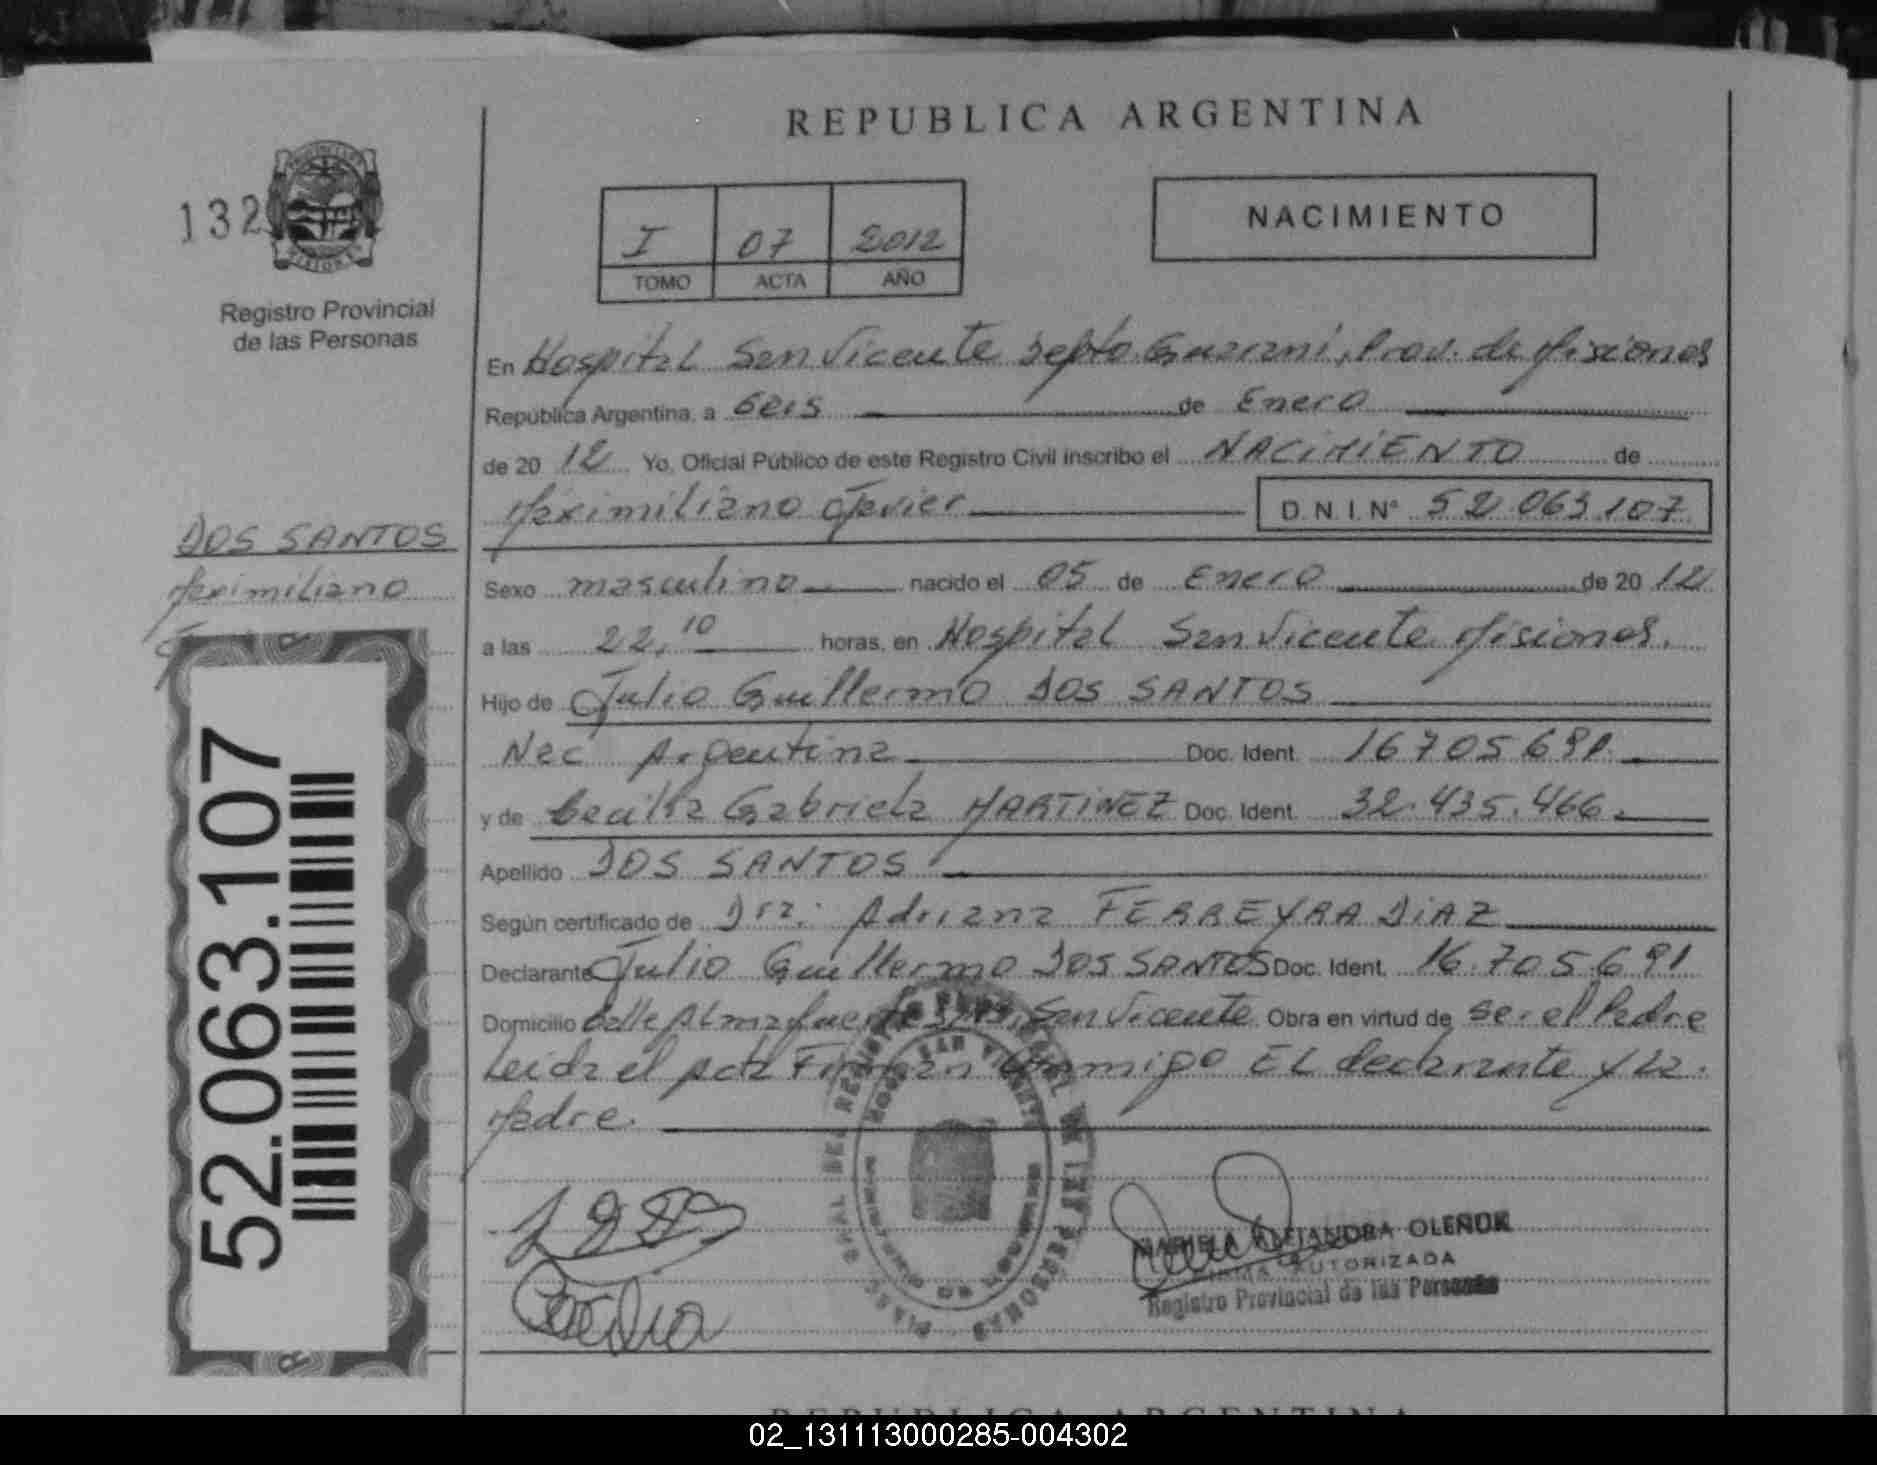 REPUBLICA ARGENTINA
132
Registro Provincial
de las Personas
I 07 2012
TOMO ACTA AÑO
NACIMIENTO
En Hospital San Vicente Depto. Guarani, Prov. de Misiones
República Argentina, a Seis de Enero
de 20 12 Yo, Oficial Público de este Registro Civil inscribo el NACIMIENTO de
Maximiliano Javier D.N.I.N° 52.063.107
DOS SANTOS
Maximiliano
Sexo masculino nacido el 05 de Enero de 20 12
a las 22,10 horas, en Hospital San Vicente Misiones.
Hijo de Julio Guillermo DOS SANTOS
Nac Argentina Doc. Ident. 16705691
y de Cecilia Gabriela MARTINEZ Doc. Ident. 32.435.466.
Apellido DOS SANTOS
Según certificado de Dra: Adriana FERREYRA DIAZ
Declarante Julio Guillermo DOS SANTOS Doc. Ident. 16.705.691
Domicilio Calle Almafuerte San Vicente Obra en virtud de ser el Padre
Leida el acta Firman Conmigo EL declarante y La
Madre.
52.063.107
MARIELA ALEJANDRA OLEÑUK
FIRMA AUTORIZADA
Registro Provincial de las Personas
REPUBLICA ARGENTINA
02_131113000285-004302